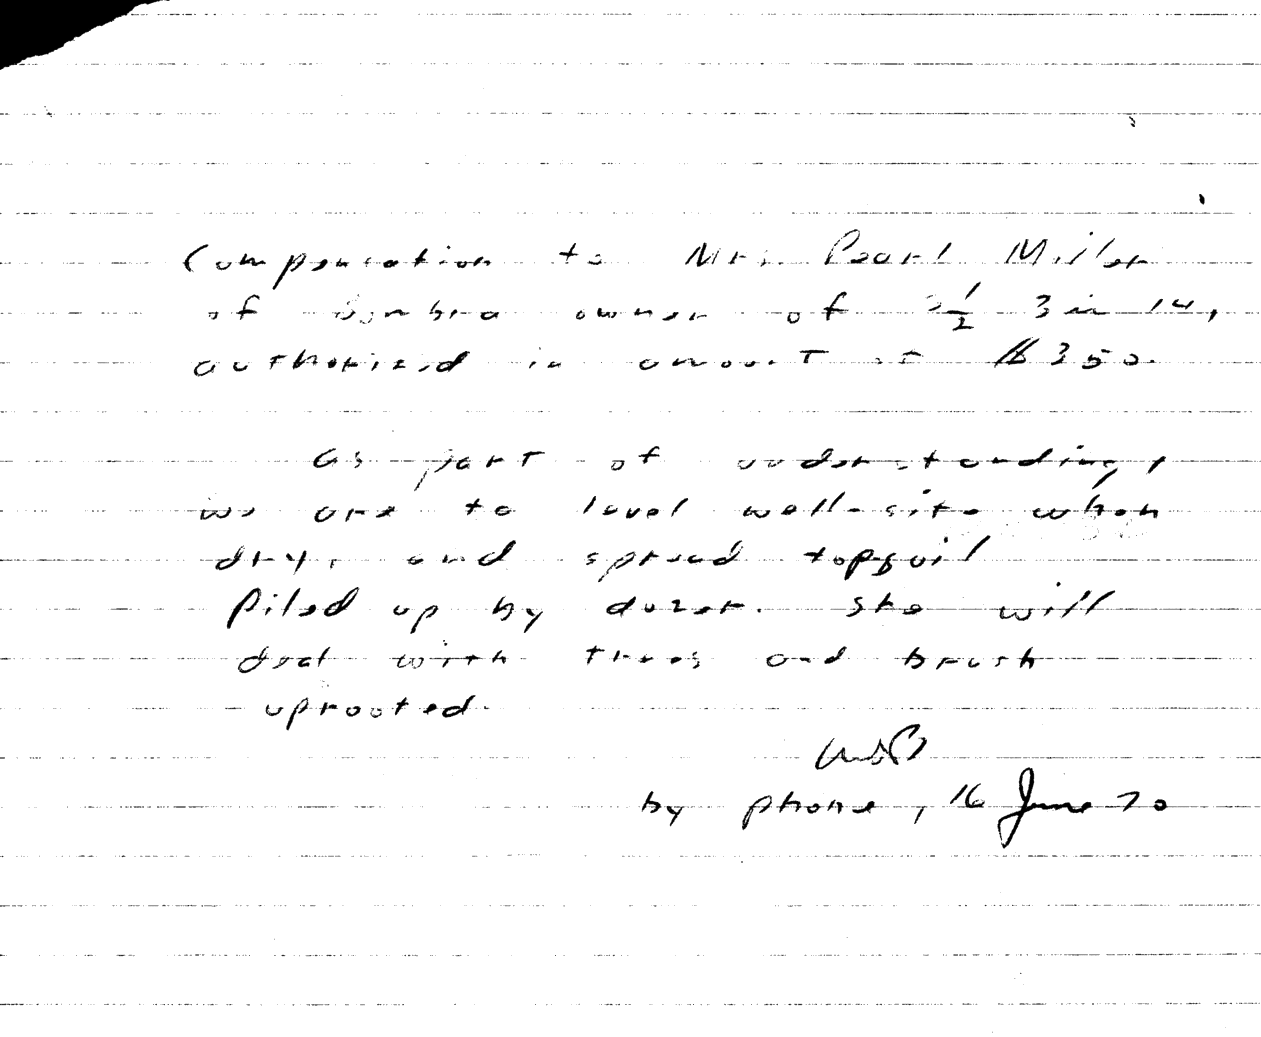 Compensation to Mrs. Pearl Miller
of Sombra owner of S½ 3 in 14,
authorized in amount of $350.
as part of understanding,
we are to level well-site when
dry, and spread topsoil
piled up by dozer. She will
deal with trees and brush
uprooted.
by phone, 16 June 70